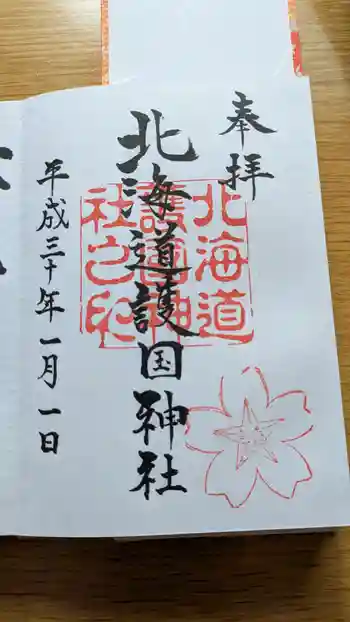 奉拝
北海道護国神社
平成三十年一月一日
北海道
護國神
社之印